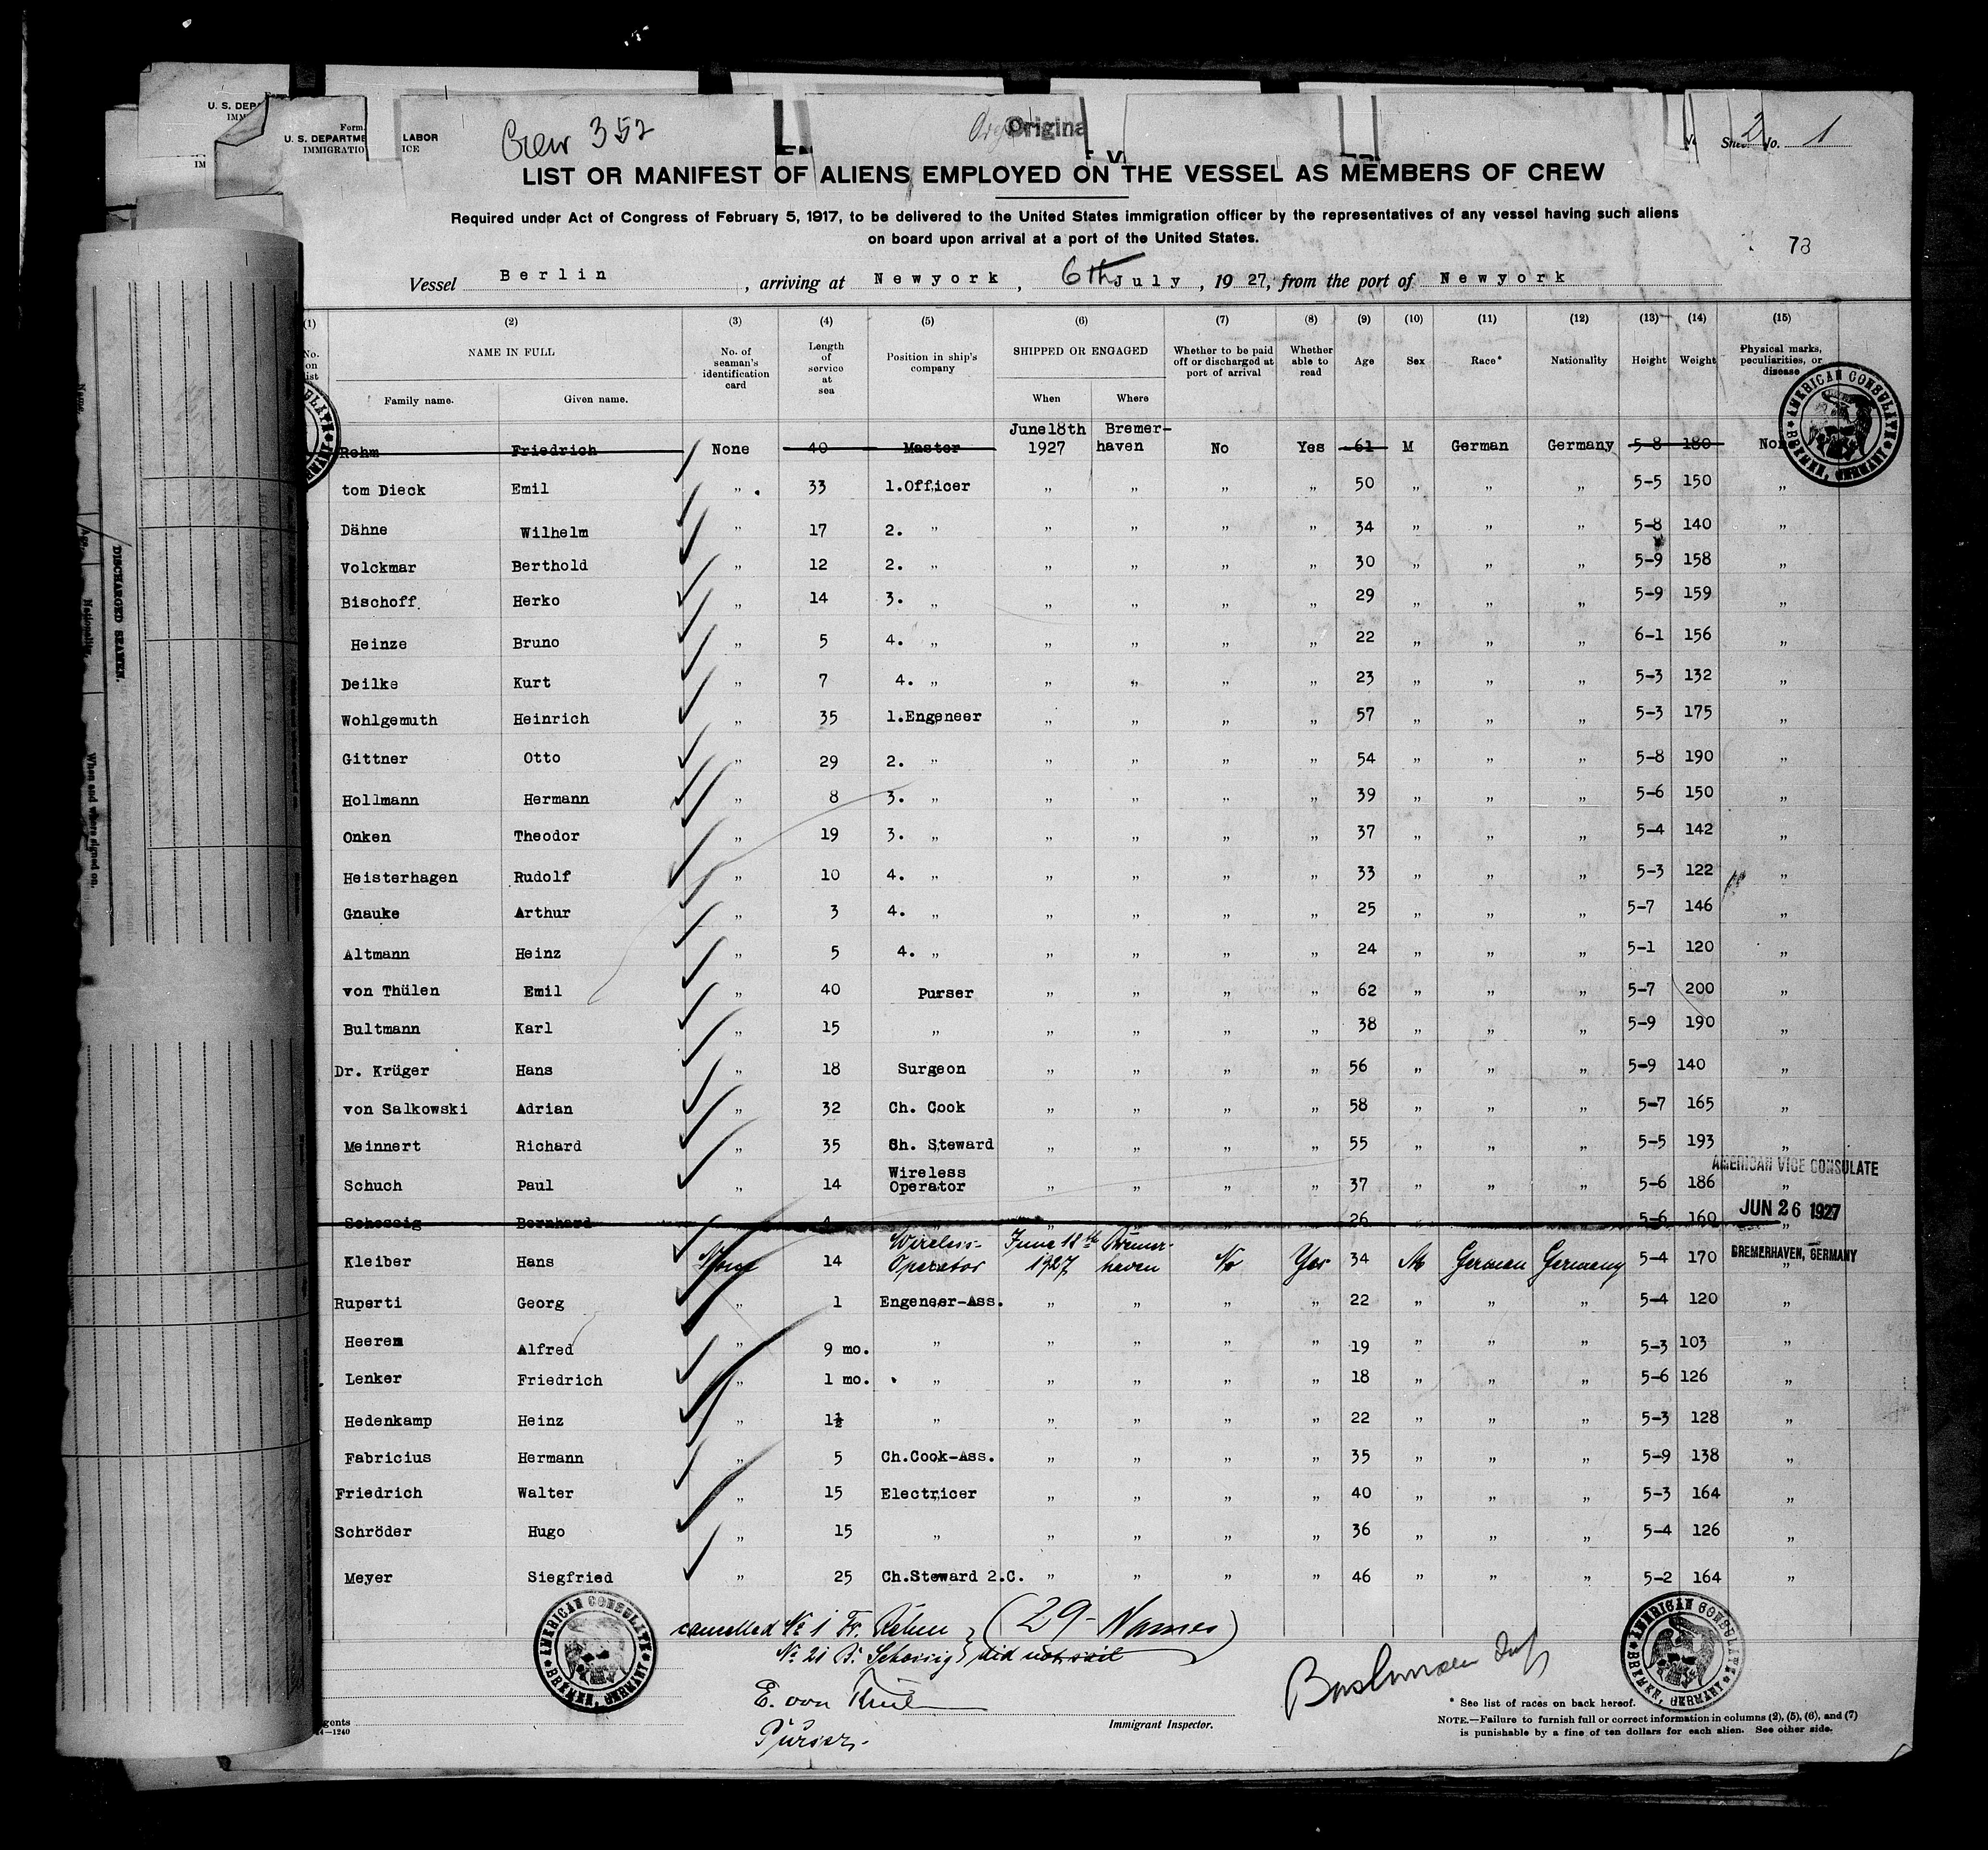 U. S. DEP
IM
Form
U. S. DEPARTME LABOR
IMMIGRATIO ICE
IM
Crew 352
Origina
Sheet No. 1
2
LIST OR MANIFEST OF ALIENS EMPLOYED ON THE VESSEL AS MEMBERS OF CREW
Required under Act of Congress of February 5, 1917, to be delivered to the United States immigration officer by the representatives of any vessel having such aliens
on board upon arrival at a port of the United States.
78
Vessel Berlin , arriving at Newyork , 6th July , 19 27, from the port of Newyork
(1) (2) (3) (4) (5) (6) (7) (8) (9) (10) (11) (12) (13) (14) (15)
No. on list NAME IN FULL No. of seaman's identification card Length of service at sea Position in ship's company SHIPPED OR ENGAGED Whether to be paid off or discharged at port of arrival Whether able to read Age Sex Race* Nationality Height Weight Physical marks, peculiarities, or disease
Family name. Given name. When Where
Rehm Friedrich None 40 Master June 18th 1927 Bremer-haven No Yes 61 M German Germany 5-8 180 Non
tom Dieck Emil " 33 1.Officer " " " " 50 " " " 5-5 150 "
Dähne Wilhelm " 17 2. " " " " " 34 " " " 5-8 140 "
Volckmar Berthold " 12 2. " " " " " 30 " " " 5-9 158 "
Bischoff Herko " 14 3. " " " " " 29 " " " 5-9 159 "
Heinze Bruno " 5 4. " " " " " 22 " " " 6-1 156 "
Deilke Kurt " 7 4. " " " " " 23 " " " 5-3 132 "
Wohlgemuth Heinrich " 35 1.Engeneer " " " " 57 " " " 5-3 175 "
Gittner Otto " 29 2. " " " " " 54 " " " 5-8 190 "
Hollmann Hermann " 8 3. " " " " " 39 " " " 5-6 150 "
Onken Theodor " 19 3. " " " " " 37 " " " 5-4 142 "
Heisterhagen Rudolf " 10 4. " " " " " 33 " " " 5-3 122 "
Gnauke Arthur " 3 4. " " " " " 25 " " " 5-7 146 "
Altmann Heinz " 5 4. " " " " " 24 " " " 5-1 120 "
von Thülen Emil " 40 Purser " " " " 62 " " " 5-7 200 "
Bultmann Karl " 15 " " " " " 38 " " " 5-9 190 "
Dr. Krüger Hans " 18 Surgeon " " " " 56 " " " 5-9 140 "
von Salkowski Adrian " 32 Ch. Cook " " " " 58 " " " 5-7 165 "
Meinnert Richard " 35 Ch. Steward " " " " 55 " " " 5-5 193 "
Schuch Paul " 14 Wireless Operator " " " " 37 " " " 5-6 186 "
Schossig Bernhard 4 " " " 26 5-6 160 "
Kleiber Hans None 14 Wireless-Operator June 18th 1927 Bremer-haven No Yes 34 M German Germany 5-4 170 "
Ruperti Georg " 1 Engeneer-Ass. " " " " 22 " " " 5-4 120 "
Heeren Alfred " 9 mo. " " " " " 19 " " " 5-3 103 "
Lenker Friedrich " 1 mo. " " " " " 18 " " " 5-6 126 "
Hedenkamp Heinz " 1½ " " " " " 22 " " " 5-3 128 "
Fabricius Hermann " 5 Ch.Cook-Ass. " " " " 35 " " " 5-9 138 "
Friedrich Walter " 15 Electricer " " " " 40 " " " 5-3 164 "
Schröder Hugo " 15 " " " " " 36 " " " 5-4 126 "
Meyer Siegfried " 25 Ch.Steward 2.C. " " " " 46 " " " 5-2 164 "
AMERICAN CONSULATE
BREMEN, GERMANY
AMERICAN VICE CONSULATE
JUN 26 1927
BREMERHAVEN, GERMANY
cancelled No 1 Fr. Rehm (29 - Names)
No 21 B. Schossig } did not sail
AMERICAN CONSULATE
BREMEN, GERMANY
AMERICAN CONSULATE
BREMEN, GERMANY
E. von Thül
Purser.
Immigrant Inspector.
* See list of races on back hereof.
NOTE.—Failure to furnish full or correct information in columns (2), (5), (6), and (7)
is punishable by a fine of ten dollars for each alien. See other side.
gents
14—1240
DISCHARGED SEAMEN.
Name.
Age.
Nationality.
When and where signed on.